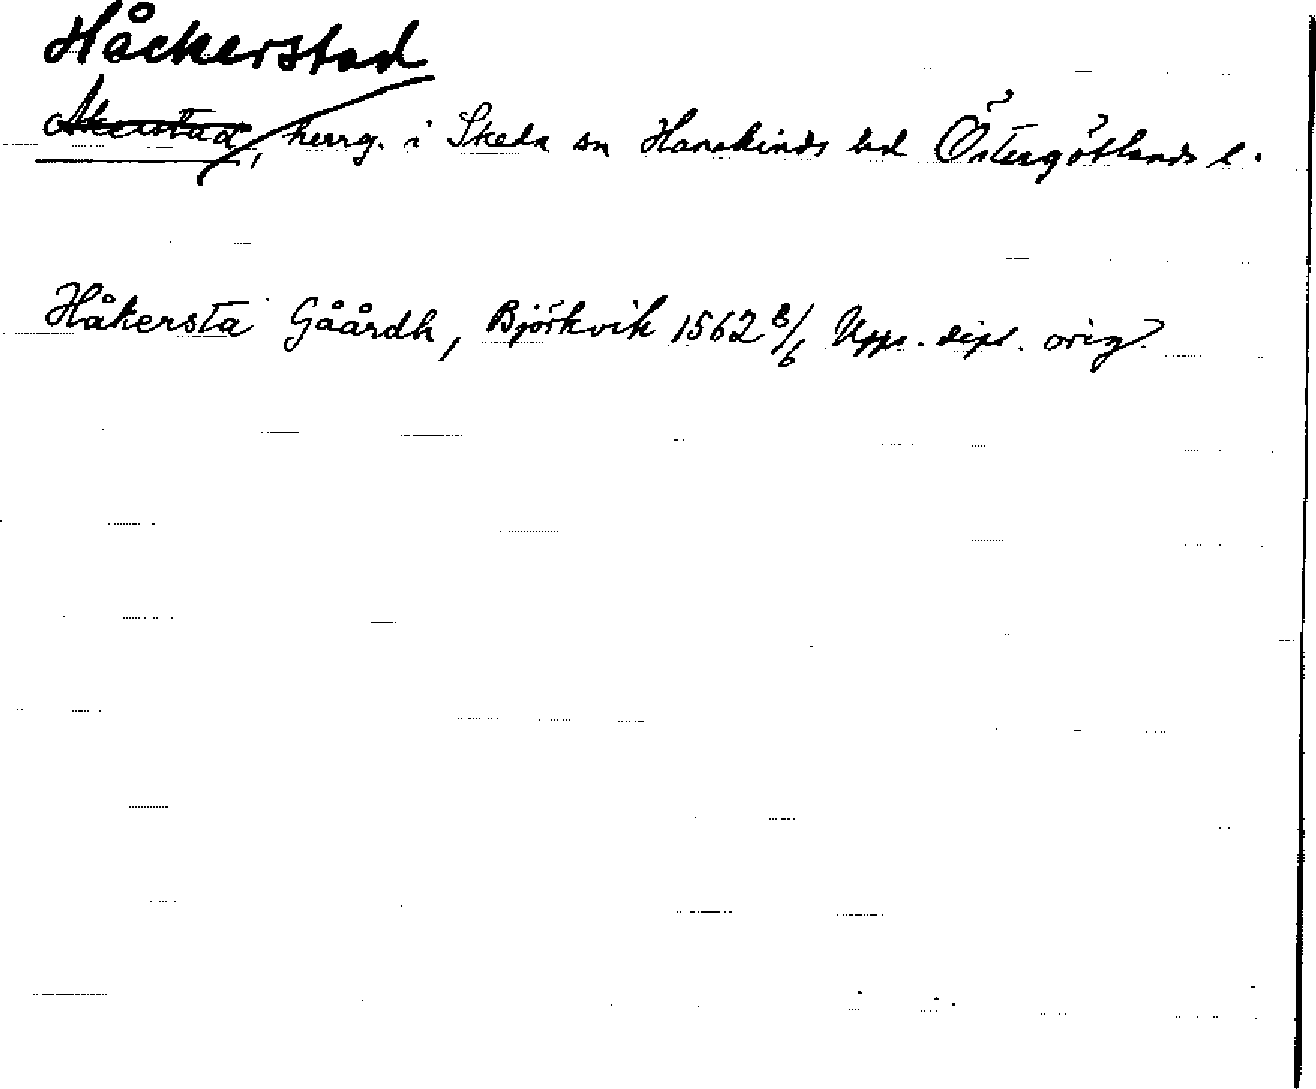 Håckerstad
Åkerstad, herrg. i Skeda sn Hanekinds hd Östergötlands l.
Håkersta Gåårdh, Björkvik 1562 8/6 Upps. dipl. orig.